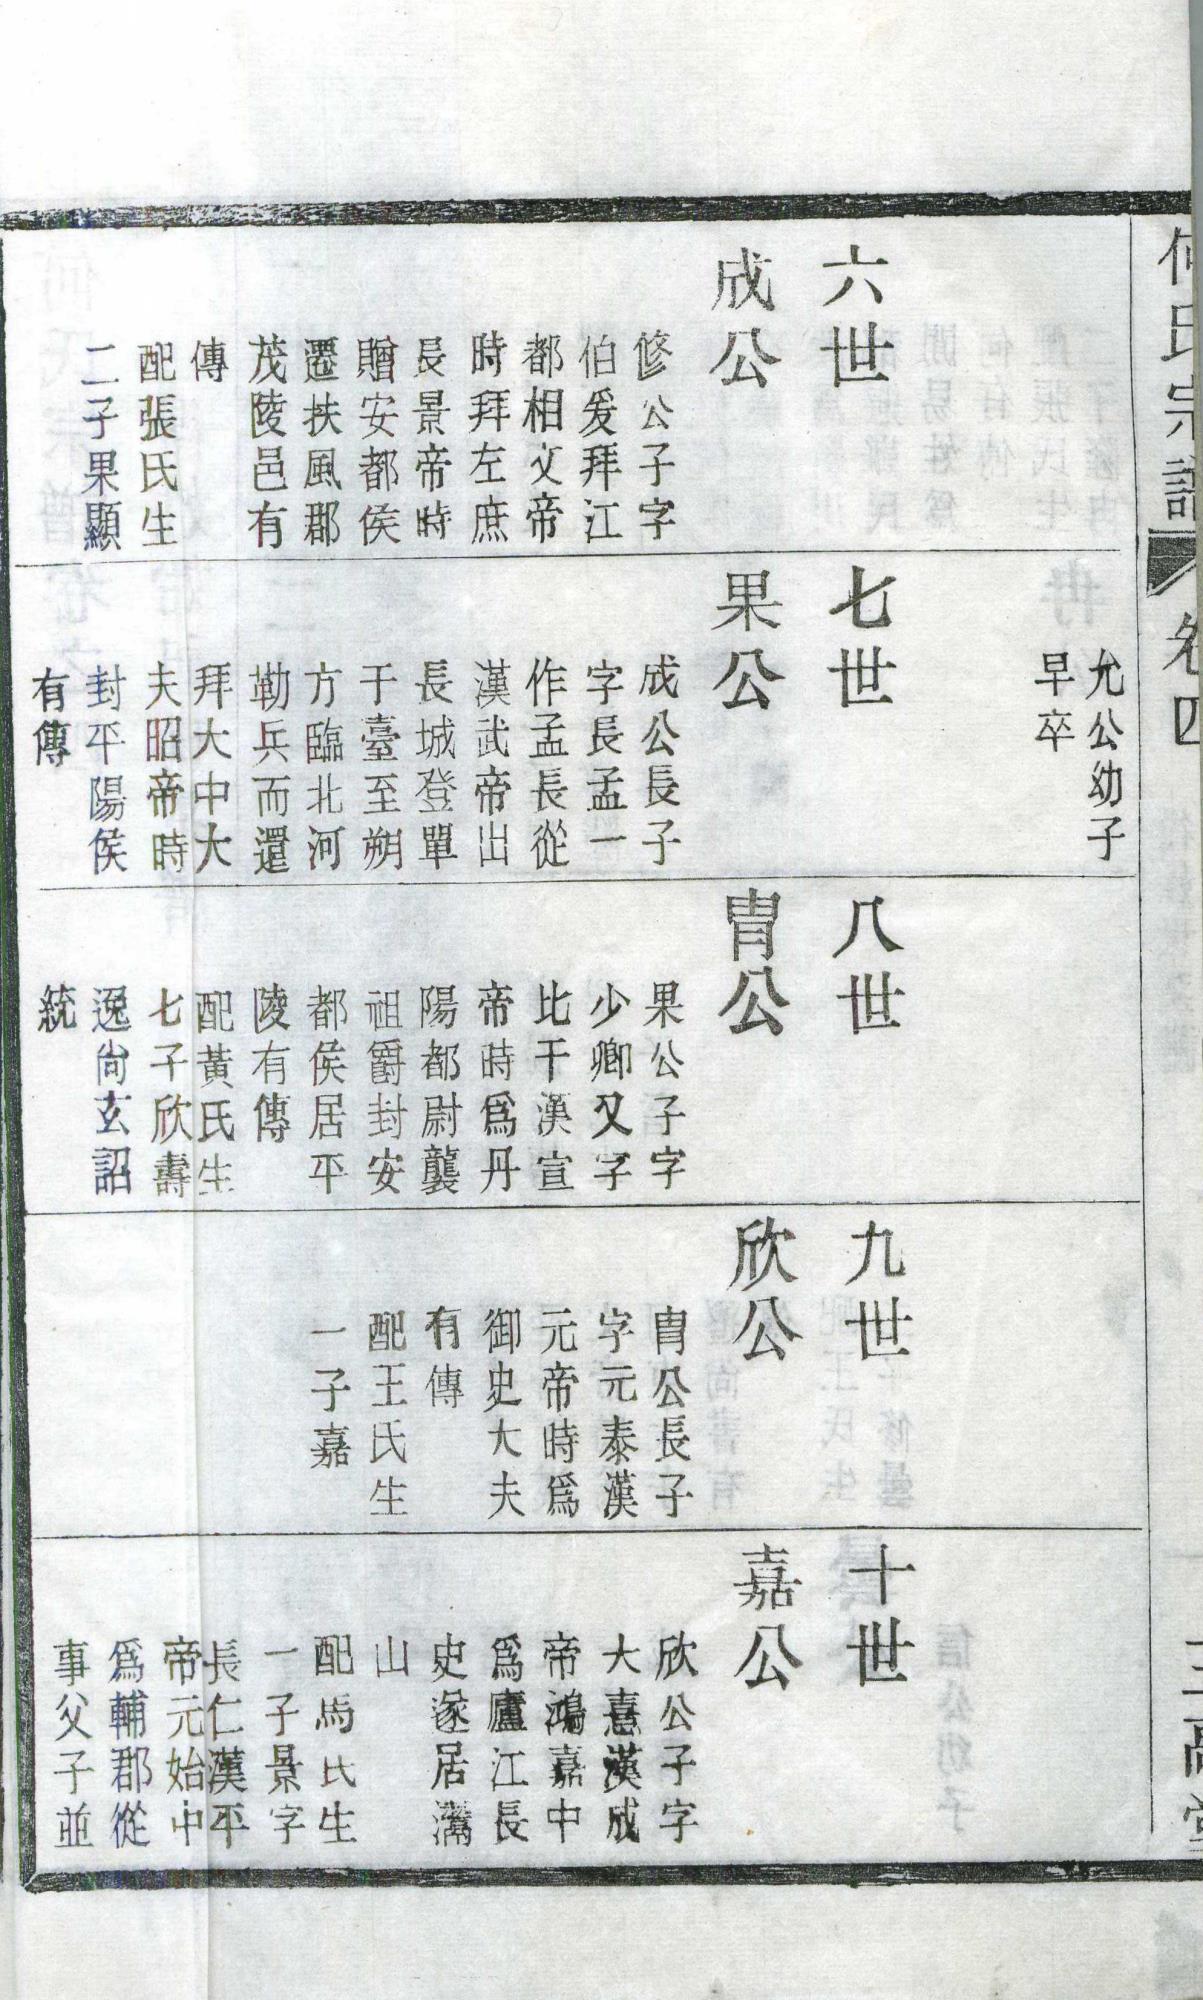 何氏宗譜
卷四
三高堂
六世
成公
修公子字
伯爰拜江
都相文帝
時拜左庶
長景帝時
贈安都侯
遷扶風郡
茂陵邑有
傳
配張氏生
二子果顯
允公幼子
早卒
七世
果公
成公長子
字長孟一
作孟長從
漢武帝出
長城登單
于臺至朔
方臨北河
勒兵而還
拜大中大
夫昭帝時
封平陽侯
有傳
八世
胄公
果公子字
少卿又字
比干漢宣
帝時爲丹
陽都尉襲
祖爵封安
都侯居平
陵有傳
配黃氏生
七子欣壽
逸尙玄詔
統
九世
欣公
胄公長子
字元泰漢
元帝時爲
御史大夫
有傳
配王氏生
一子嘉
十世
嘉公
欣公子字
大憙漢成
帝鴻嘉中
爲廬江長
史遂居灊
山
配馬氏生
一子景字
長仁漢平
帝元始中
爲輔郡從
事父子並